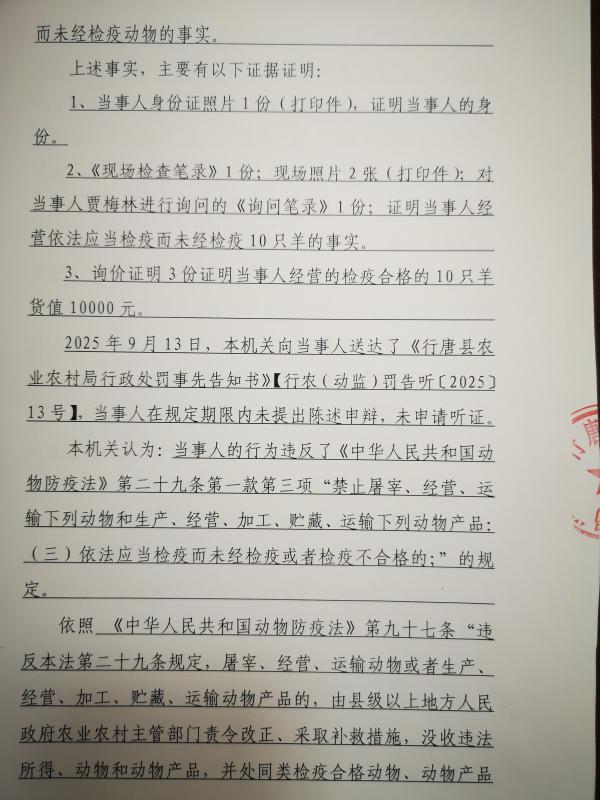 而未经检疫动物的事实。
上述事实，主要有以下证据证明：
1、当事人身份证照片1份（打印件），证明当事人的身
份。
2、《现场检查笔录》1份；现场照片2张（打印件）；对
当事人贾梅林进行询问的《询问笔录》1份；证明当事人经
营依法应当检疫而未经检疫10只羊的事实。
3、询价证明3份证明当事人经营的检疫合格的10只羊
货值10000元。
2025年9月13日，本机关向当事人送达了《行唐县农
业农村局行政处罚事先告知书》【行农（动监）罚告听〔2025〕
13号】，当事人在规定期限内未提出陈述申辩，未申请听证。
本机关认为：当事人的行为违反了《中华人民共和国动
物防疫法》第二十九条第一款第三项“禁止屠宰、经营、运
输下列动物和生产、经营、加工、贮藏、运输下列动物产品：
（三）依法应当检疫而未经检疫或者检疫不合格的；”的规
定。
依照 《中华人民共和国动物防疫法》第九十七条“违
反本法第二十九条规定，屠宰、经营、运输动物或者生产、
经营、加工、贮藏、运输动物产品的，由县级以上地方人民
政府农业农村主管部门责令改正、采取补救措施，没收违法
所得、动物和动物产品，并处同类检疫合格动物、动物产品
唐